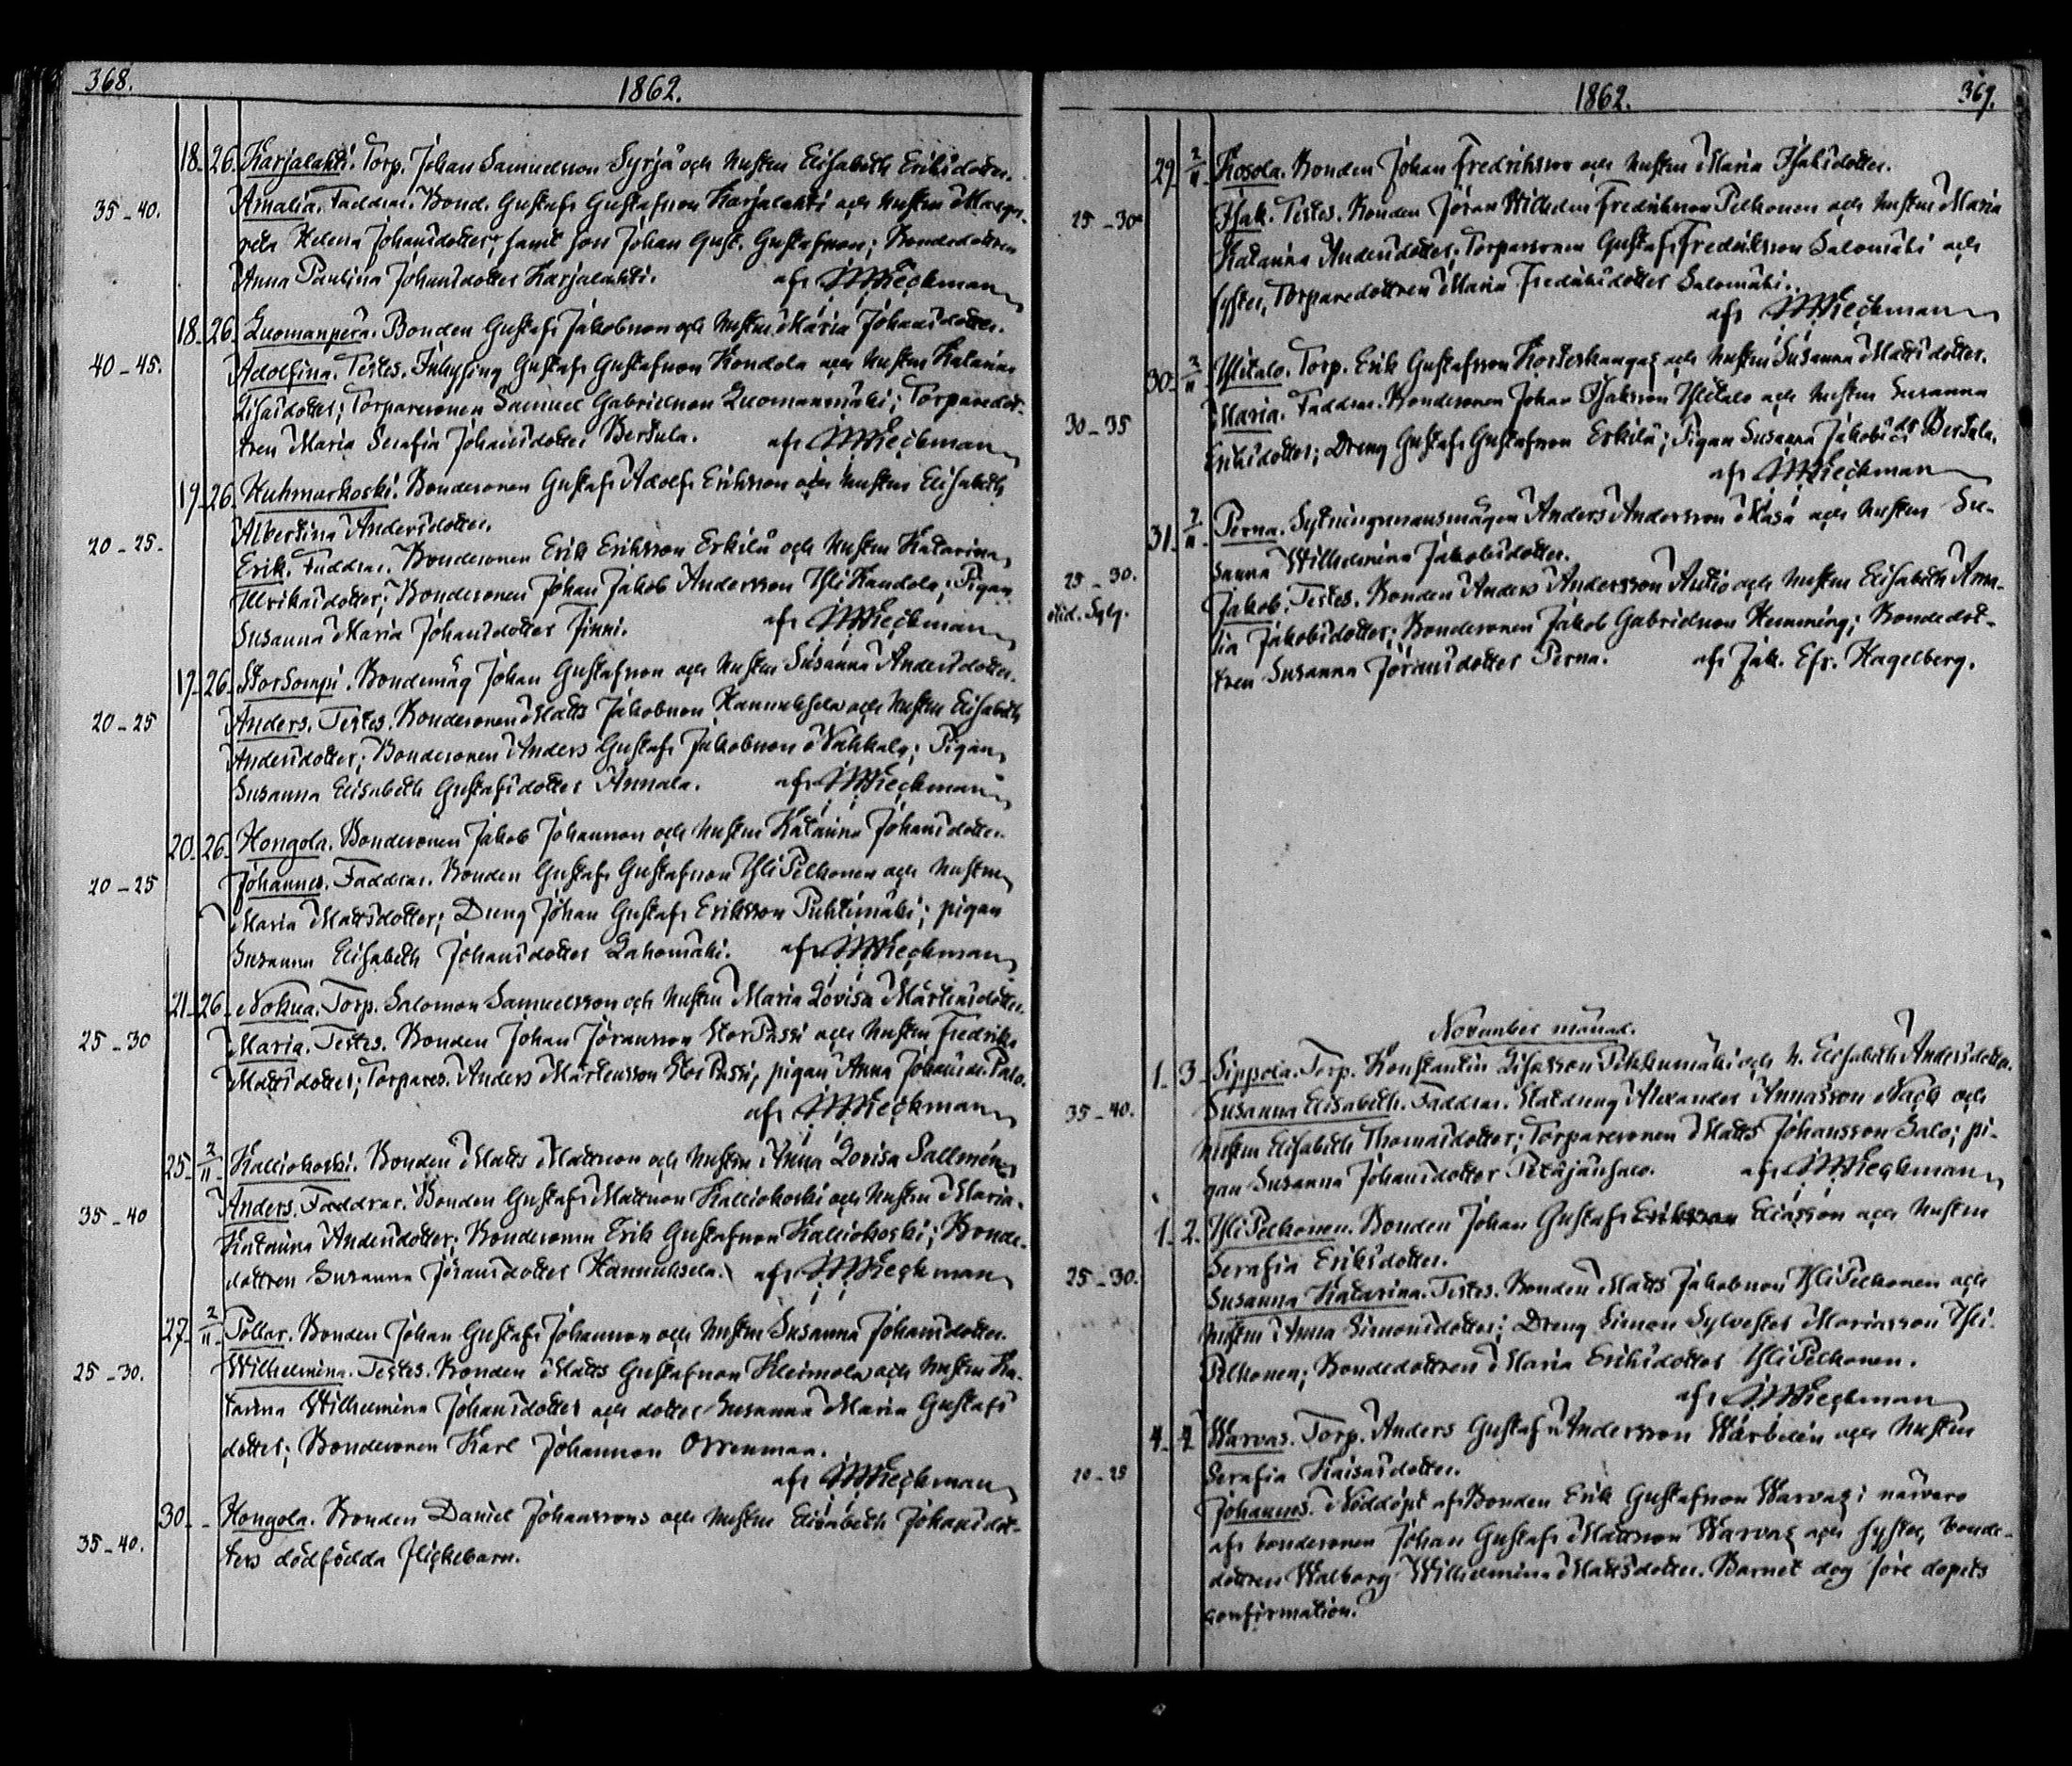 368.
1862.
18. 26. Karjalahti. Torp. Johan Samuelsson Syrjä och hustru Elisabeth Eriksdotter.
35-40. Amalia. Faddrar. Bond. Gustaf Gustafsson Karjalahti och hustru Marga-
reta Helena Johansdotter, samt son Johan Gust. Gustafsson; Bondedottren
Anna Paulina Johansdotter Karjalahti. af Wieckman
18. 26. Luomanperä. Bonden Gustaf Jakobsson och hustru Maria Johansdotter.
40-45. Adolfina. Testes. Inhysing Gustaf Gustafsson Kondola och hustru Katarina
Lisasdotter; Torparesonen Samuel Gabrielsson Luomanmäki; Torparedot-
tren Maria Serafia Johansdotter Bertula. af Wieckman
19. 26. Huhmarkoski. Bondesonen Gustaf Adolf Eriksson och hustru Elisabeth
Albertina Andersdotter.
20-25. Erik. Faddrar. Bondesonen Erik Eriksson Erkilä och hustru Katarina
Ulrikasdotter; Bondesonen Johan Jakob Andersson Yli Kandola; Pigan
Susanna Maria Johansdotter Finni. af Wieckman
19. 26. StorSompi. Bondemåg Johan Gustafsson och hustru Susanna Andersdotter.
20-25 Anders. Testes. Bondesonen Matts Jakobsson Hannuksela och hustru Elisabeth
Andersdotter; Bondesonen Anders Gustaf Jakobsson Nahkala; Pigan
Susanna Elisabeth Gustafsdotter Annala. af Wieckman
20. 26. Hongola. Bondesonen Jakob Johansson och hustru Katarina Johansdotter.
20-25 Johannes. Faddrar. Bonden Gustaf Gustafsson YliPelkonen och hustru
Maria Mattsdotter; Dreng Johan Gustaf Eriksson Puhtimäki; pigan
Susanna Elisabeth Johansdotter Lahomäki. af Wieckman
21. 26. Nohua. Torp. Salomon Samuelsson och hustru Maria Lovisa Mårtensdotter.
25-30 Maria. Testes. Bonden Johan Jöransson StorPassi och hustru Fredrika
Mattsdotter; Torpares. Anders Mårtensson Stor Passi, pigan Anna Johansdr. Palo.
af Wieckman
25. 2/11. Kalliokoski. Bonden Matts Mattsson och hustru Anna Lovisa Sallmén.
35-40 Anders. Faddrar. Bonden Gustaf Mattsson Kalliokoski och hustru Maria
Katarina Andersdotter; Bondesonen Erik Gustafsson Kalliokoski; Bonde-
dottren Susanna Jöransdotter Hannuksela. af Wieckman
27. 2/11. Pollar. Bonden Johan Gustaf Johansson och hustru Susanna Johansdotter.
25-30. Wilhelmina. Testes. Bonden Matts Gustafsson Kleimola och hustru Ka-
tarina Wilhelmina Johansdotter och dotter Susanna Maria Gustafs
dotter; Bondesonen Karl Johansson Orrenmaa.
af Wieckman
30. - Hongola. Bonden Daniel Johanssons och hustru Elisabeth Johansdot-
35-40. ters dödfödda flickebarn.
1862.
369.
29. 2/11. Kosola. Bonden Johan Fredriksson och hustru Maria Isaksdotter.
25-30 Isak. Testes. Bonden Jöran Wilhelm Fredriksson Pelkonen och hustru Maria
Katarina Andersdotter; Torparesonen Gustaf Fredriksson Salomäki och
syster, Torparedottren Maria Fredriksdotter Salomäki.
af Wieckman
30. 2/11. Ylitalo. Torp. Erik Gustafsson Kosteskangas och hustru Susanna Mattsdotter.
30-35 Maria. Faddrar. Bondesonen Johan Isaksson Ylitalo och hustru Susanna
Eriksdotter; Dreng Gustaf Gustafsson Erkilä; Pigan Susanna Jakobsdr Bertula.
af Wieckman
31. 2/11. Perna. Sytningsmansmågen Anders Andersson Kasa och hustru Su-
sanna Wilhelmina Jakobsdotter.
25-30. Jakob. Testes. Bonden Anders Andersson Autio och hustru Elisabeth Ama-
lia Jakobsdotter; Bondesonen Jakob Gabrielsson Hemming; Bondedot-
tren Susanna Jöransdotter Perna. af Jak. Efr. Hagelberg.
November månad.
1. 3. Sippola. Torp. Konstantin Lisasson Pikkumäki och h. Elisabeth Andersdotter.
35-40. Susanna Elisabeth. Faddrar. Statdreng Alexander Annasson Nach och
hustru Elisabeth Thomasdotter; Torparesonen Matts Johansson Salo; pi-
gan Susanna Johansdotter Petäjänsalo. af Wieckman
1. 2. YliPelkonen. Bonden Johan Gustaf Eriksson Eliasson och hustru
Serafia Eriksdotter.
25-30. Susanna Katarina. Testes. Bonden Matts Jakobsson YliPelkonen och
hustru Anna Simonsdotter; Dreng Simon Sylvester Mariasson Yli
Pelkonen; Bondedottren Maria Eriksdotter YliPelkonen.
af Wieckman
4. 4. Warvas. Torp. Anders Gustaf Andersson Warbelin och hustru
20-25 Serafia Kaisasdotter.
Johannes. Nöddöpt af Bonden Erik Gustafsson Warvas i närvaro
af bondesonen Johan Gustaf Mattsson Warvas och syster, bonde-
dottren Walborg Wilhelmina Mattsdotter. Barnet dog före dopets
confirmation.